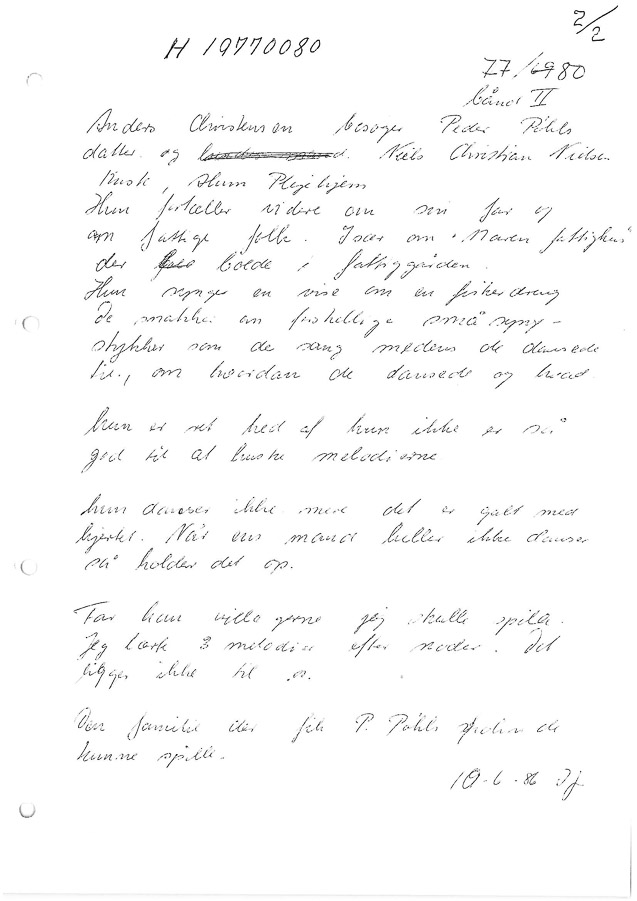 2/2
H 19770080
77/6980
bånd II
Anders Christensen besøger Peder Pöhls
datter og Niels Christian Nielsen
Kusk, Plejehjem
Hun fortæller videre om sin far og
om fattige folk. Især om "Maren fattighus"
der boede i fattiggården.
Hun synger en vise om en fiskerdreng
De snakker om forskellige små syng-
stykker som de sang medens de dansede
til, om hvordan de dansede og hvad
hun er ret ked af hun ikke er så
god til at huske melodierne
hun danser ikke mere det er galt med
hjertet. Når ens mand heller ikke danser
så holder det op.
Far han ville gerne jeg skulle spille.
Jeg lærte 3 melodier efter noder. Det
ligger ikke til os.
Den familie der fik P. Pöhls violin de
kunne spille.
10-6-86